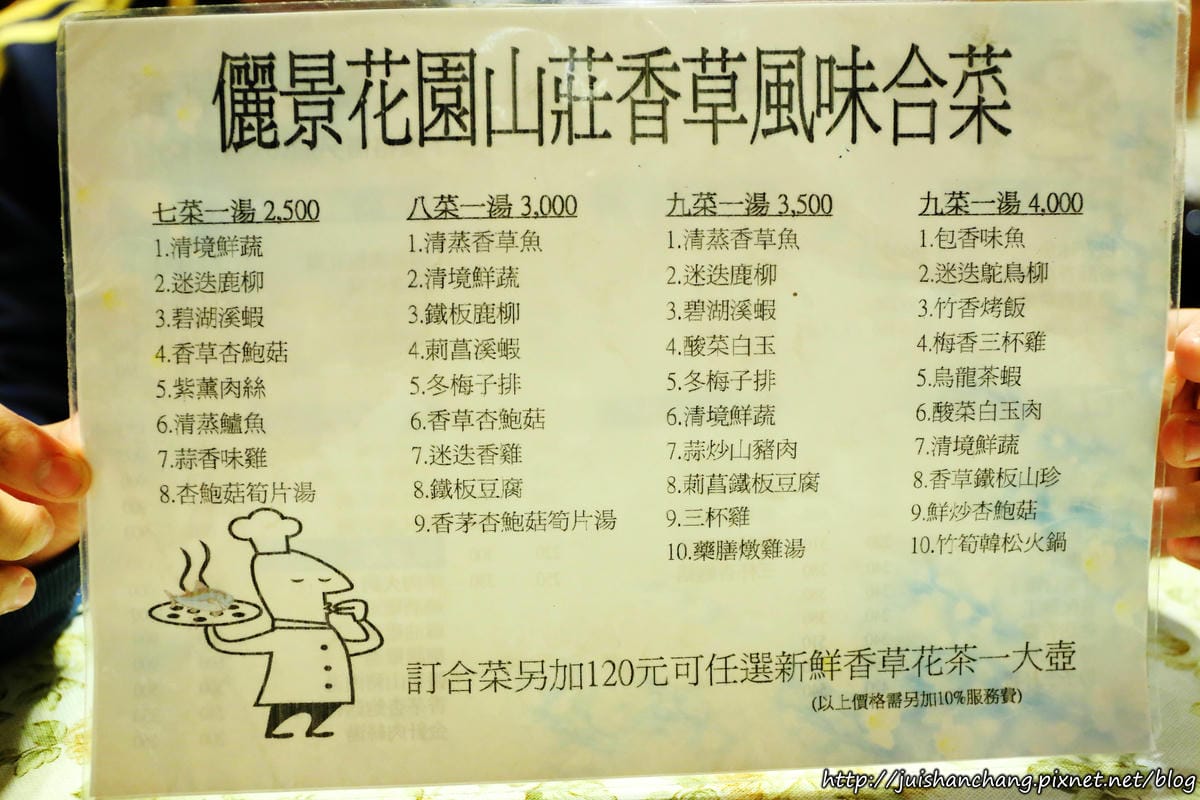 儷景花園山莊香草風味合菜
七菜一湯 2,500
1.清境鮮蔬
2.迷迭鹿柳
3.碧湖溪蝦
4.香草杏鮑菇
5.紫薰肉絲
6.清蒸鱸魚
7.蒜香味雞
8.杏鮑菇筍片湯
八菜一湯 3,000
1.清蒸香草魚
2.清境鮮蔬
3.鐵板鹿柳
4.莿菖溪蝦
5.冬梅子排
6.香草杏鮑菇
7.迷迭香雞
8.鐵板豆腐
9.香茅杏鮑菇筍片湯
九菜一湯 3,500
1.清蒸香草魚
2.迷迭鹿柳
3.碧湖溪蝦
4.酸菜白玉
5.冬梅子排
6.清境鮮蔬
7.蒜炒山豬肉
8.莿菖鐵板豆腐
9.三杯雞
10.藥膳燉雞湯
九菜一湯 4,000
1.包香味魚
2.迷迭鴕鳥柳
3.竹香烤飯
4.梅香三杯雞
5.烏龍茶蝦
6.酸菜白玉肉
7.清境鮮蔬
8.香草鐵板山珍
9.鮮炒杏鮑菇
10.竹筍韓松火鍋
訂合菜另加120元可任選新鮮香草花茶一大壺
(以上價格需另加10%服務費)
http://juishanchang.pixnet.net/blog